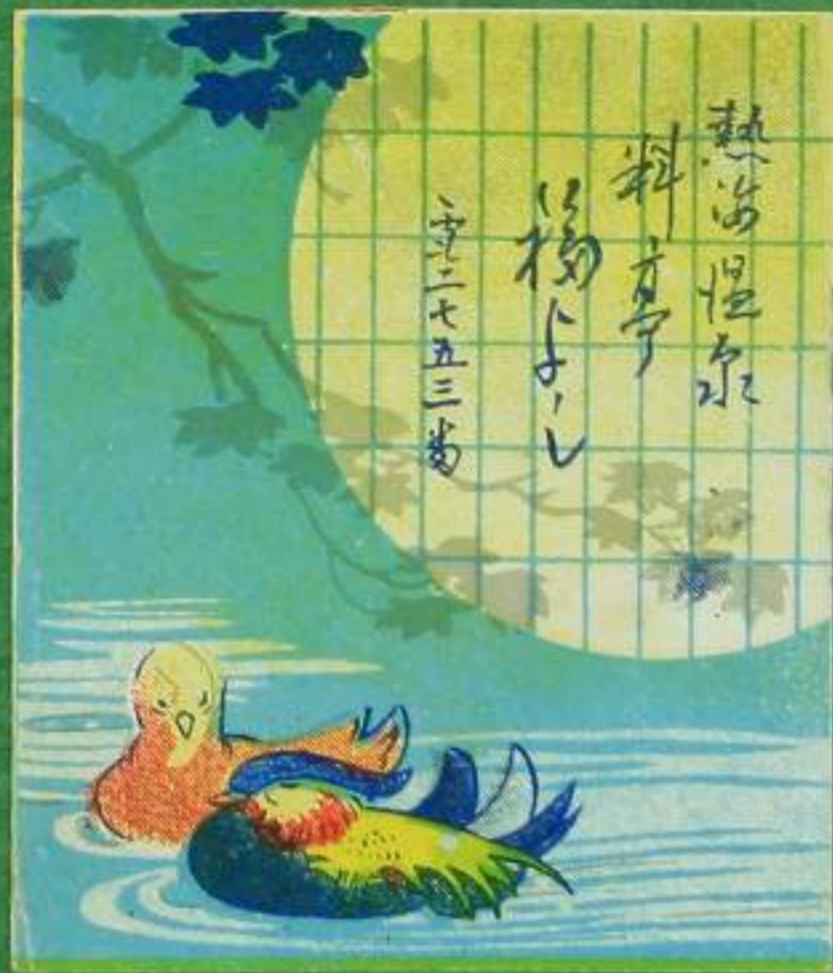 熱海温泉
料亭
福よし
電二七五三番